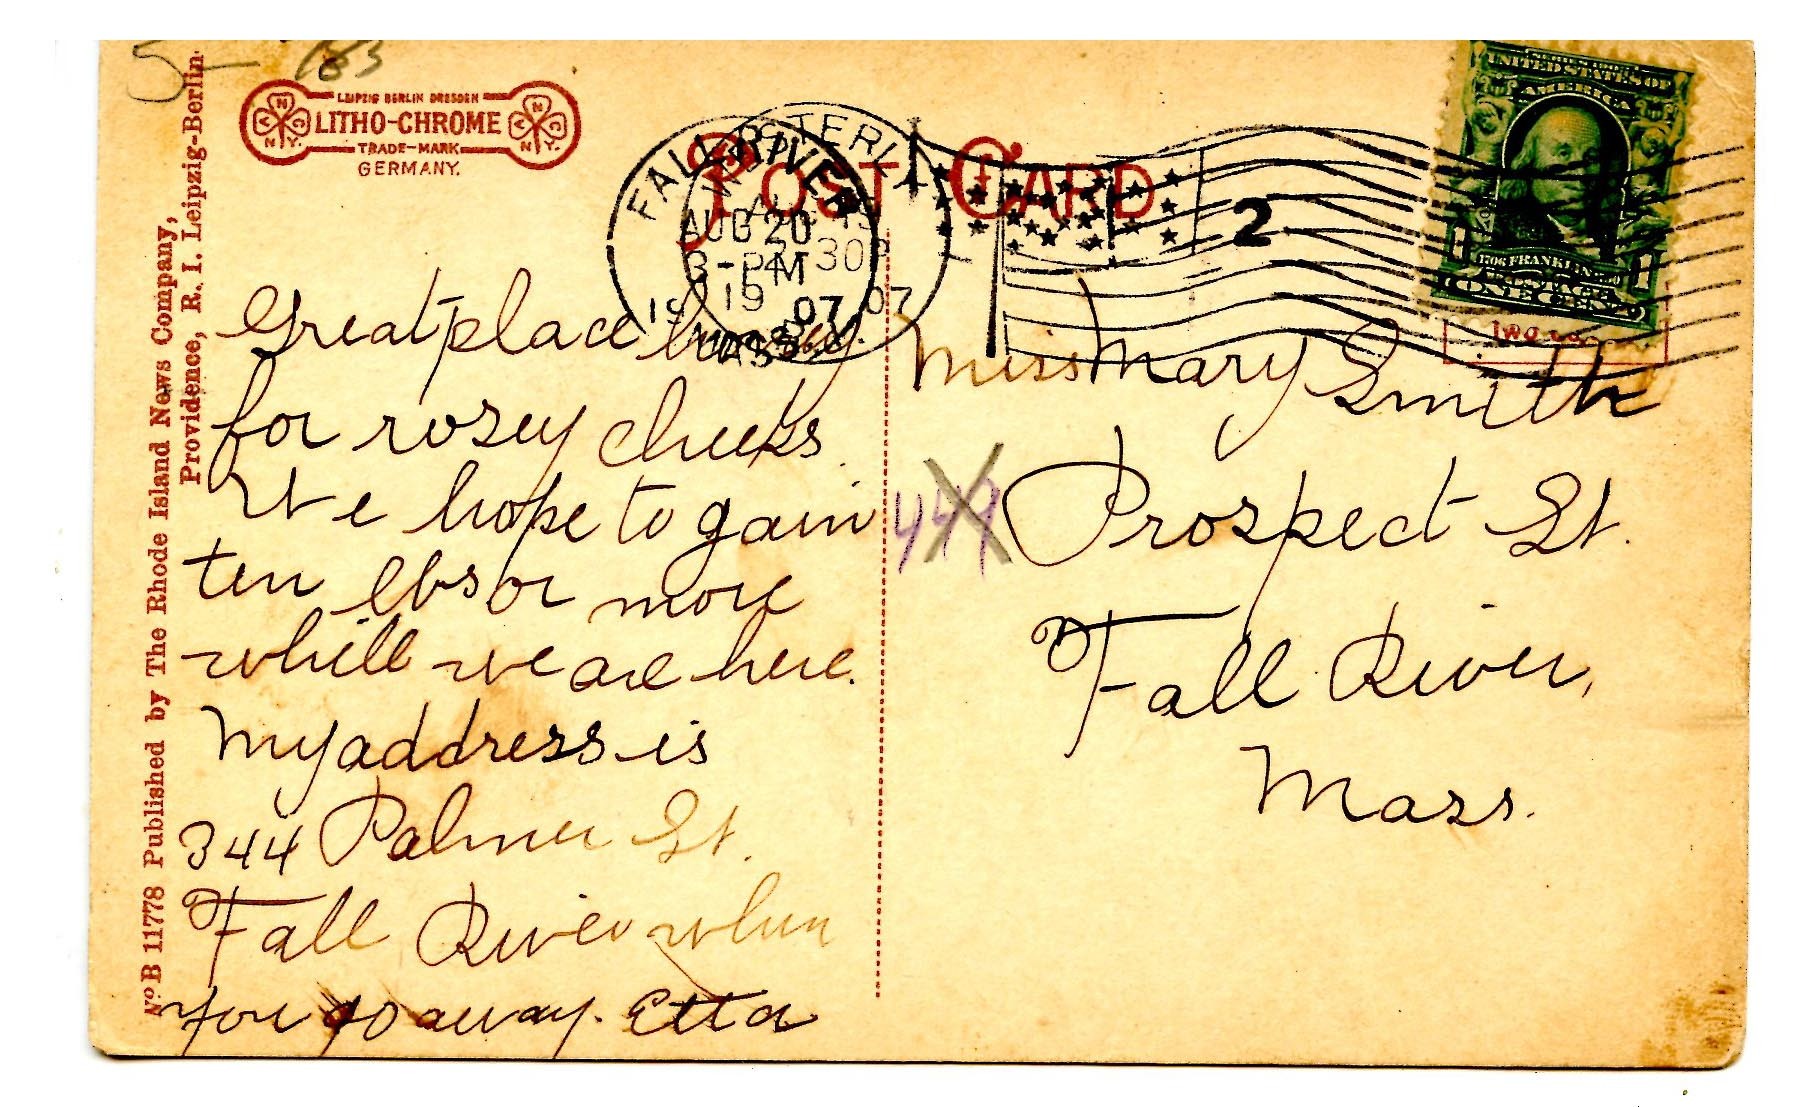 5- 183
LEIPZIG BERLIN DRESDEN
LITHO-CHROME
TRADE-MARK
GERMANY.
A N C N.Y.
A N C N.Y.
Post Card
FALL RIVER
AUG 20
3-PM
1907
MASS.
WESTERLY
AUG 19
4 30P
1907
2
UNITED STATES OF
AMERICA
1706 FRANKLIN 1790
ONE CENT
1 1
Nº B 11778 Published by The Rhode Island News Company,
Providence, R. I. Leipzig-Berlin
Great place
for rosey cheeks.
We hope to gain
ten lbs or more
whill we are here.
My address is
344 Palmer St.
Fall River when
you go away. Etta
Miss Mary Smith
449 Prospect St.
Fall River,
Mass.